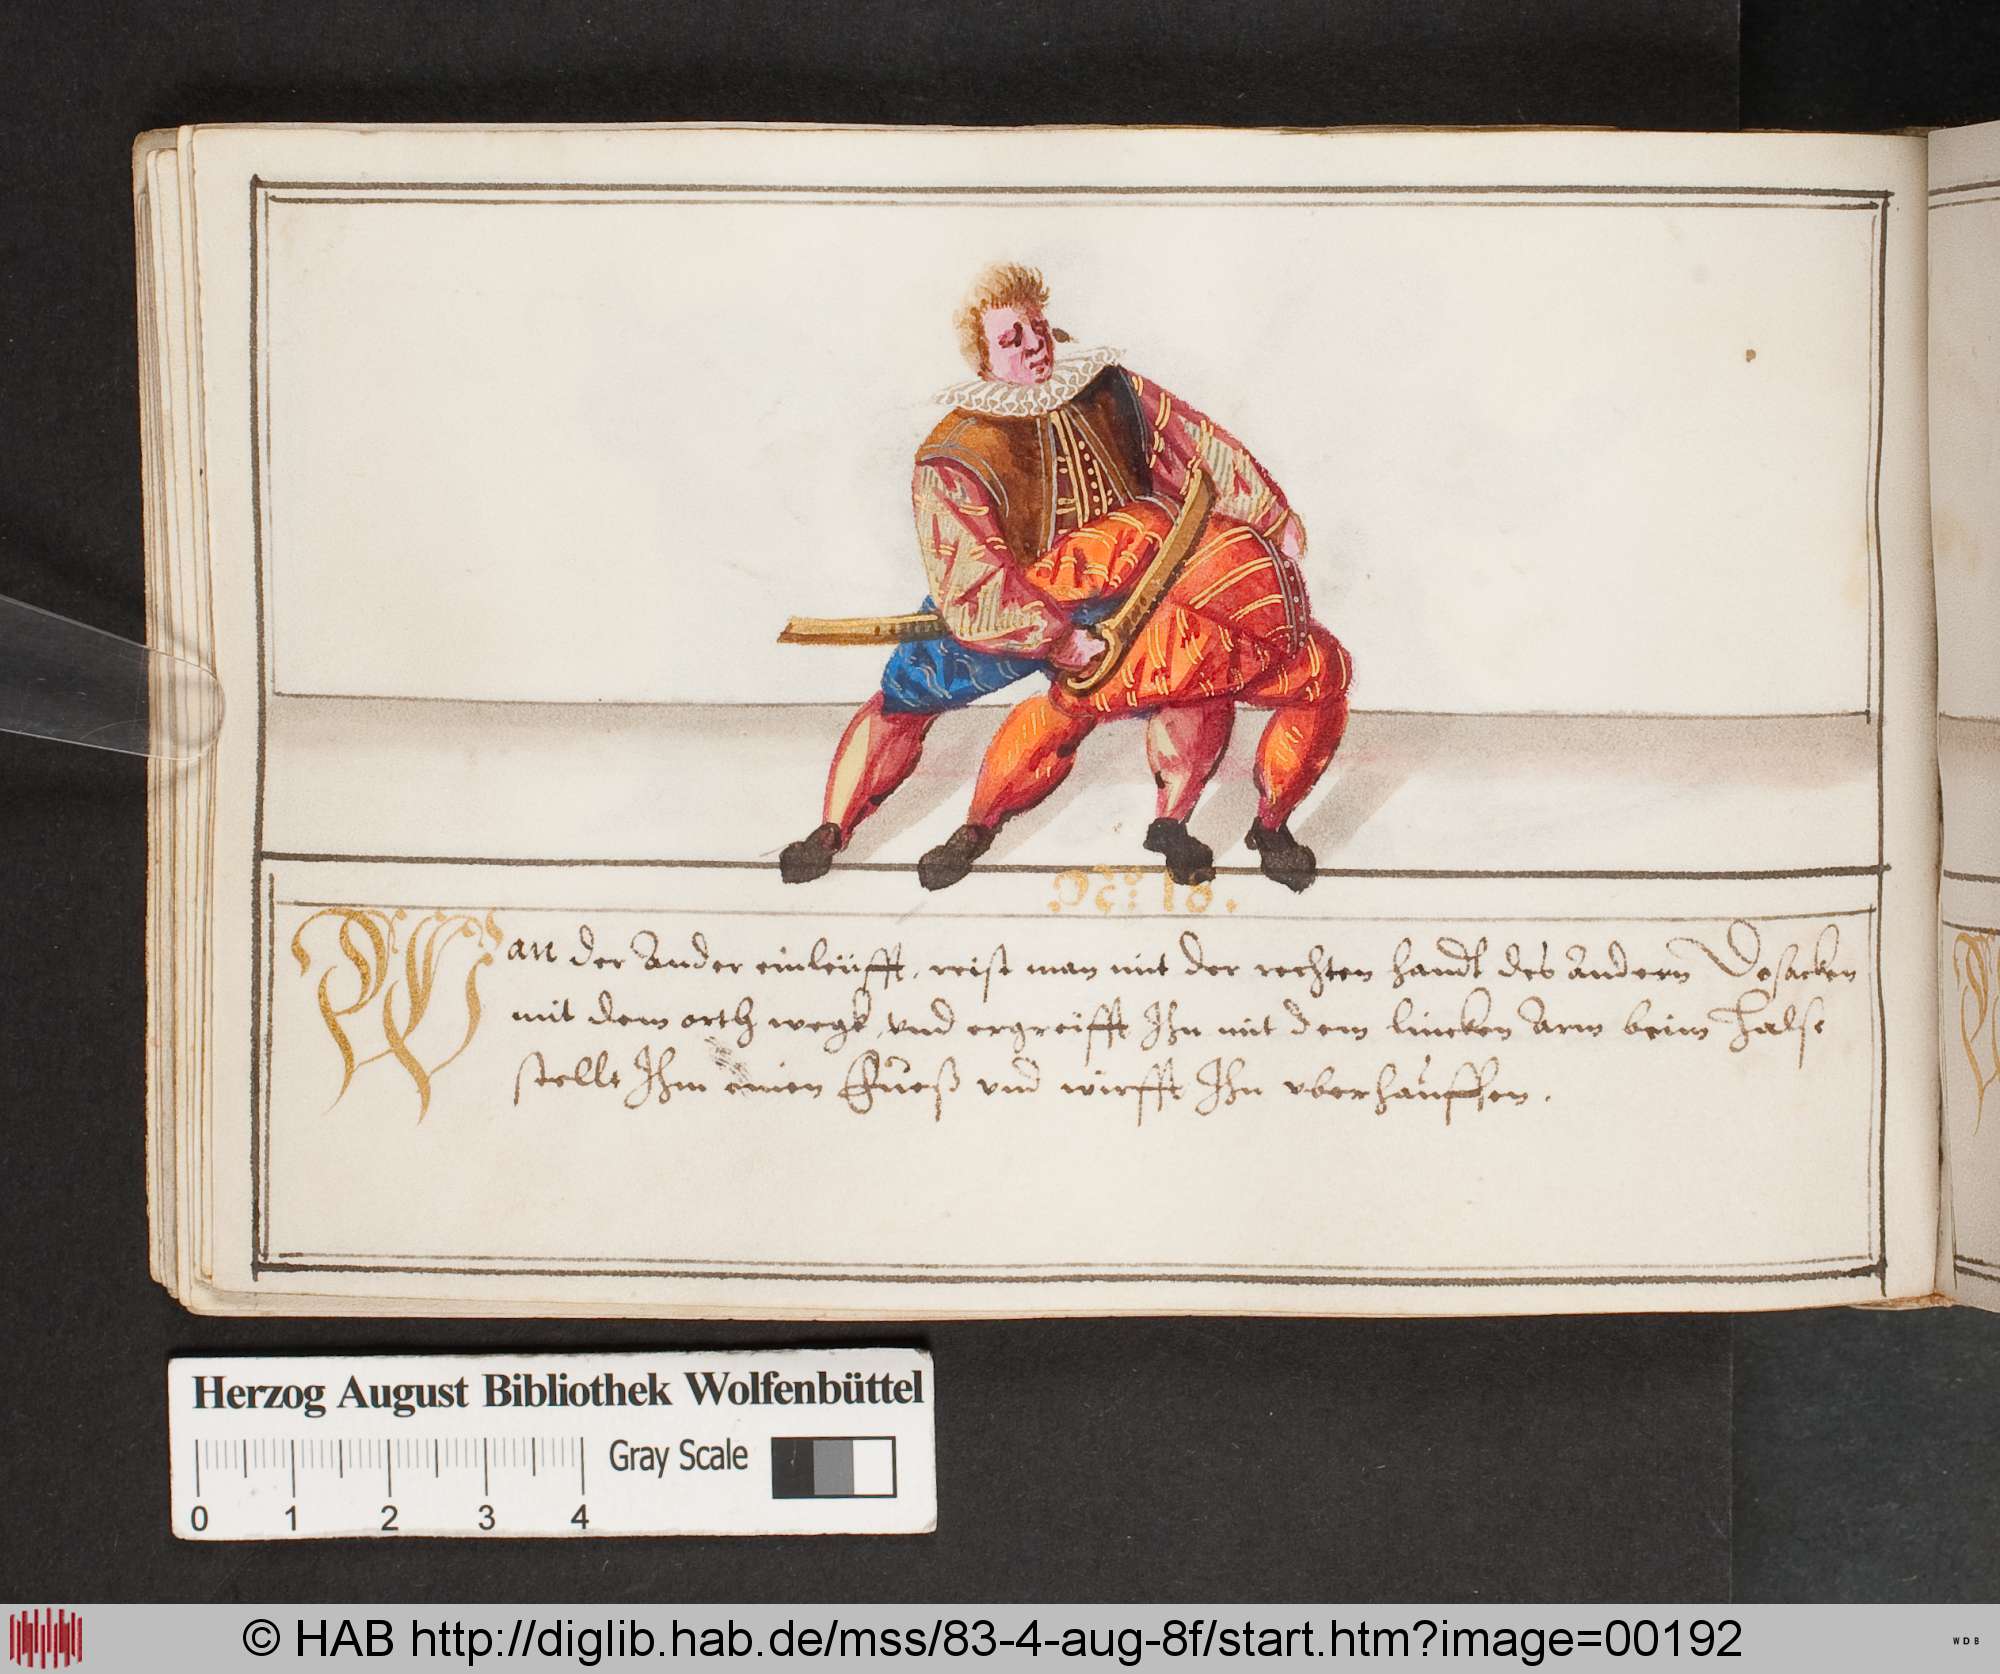 No: 18.
Wan der Ander einleüfft, reist man mit der rechten handt des Andern Dosacken
mit dem orth wegk, vnd ergreifft Ihn mit dem lincken Arm beim Halse
stellt Ihm einen Fueß vnd wirfft Ihn vberhauffen.
Herzog August Bibliothek Wolfenbüttel
Gray Scale
0 1 2 3 4
© HAB http://diglib.hab.de/mss/83-4-aug-8f/start.htm?image=00192
WDB